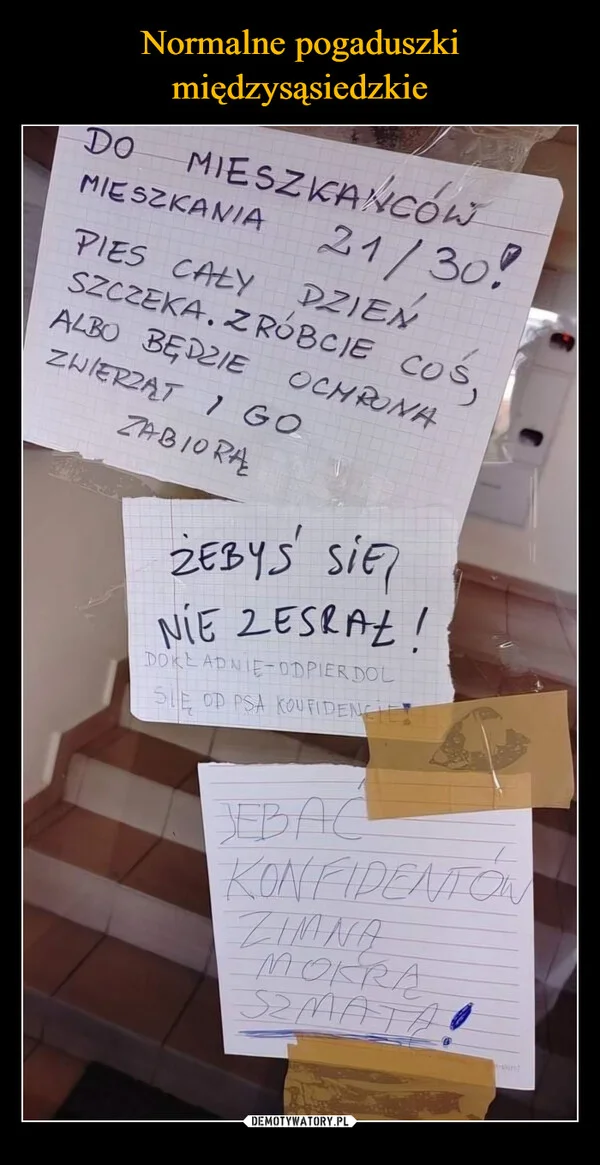 Normalne pogaduszki
międzysąsiedzkie
DO MIESZKAŃCÓW
MIESZKANIA 21/30!
PIES CAŁY DZIEŃ
SZCZEKA. ZRÓBCIE COŚ,
ALBO BĘDZIE OCHRONA
ZWIERZĄT I GO
ZABIORĄ
ŻEBYŚ SIĘ
NIE ZESRAŁ!
DOKŁADNIE-ODPIERDOL
SIĘ OD PSA KONFIDENCIE!
JEBAĆ
KONFIDENTÓW
ZIMNĄ
MOKRĄ
SZMATĄ!
DEMOTYWATORY.PL